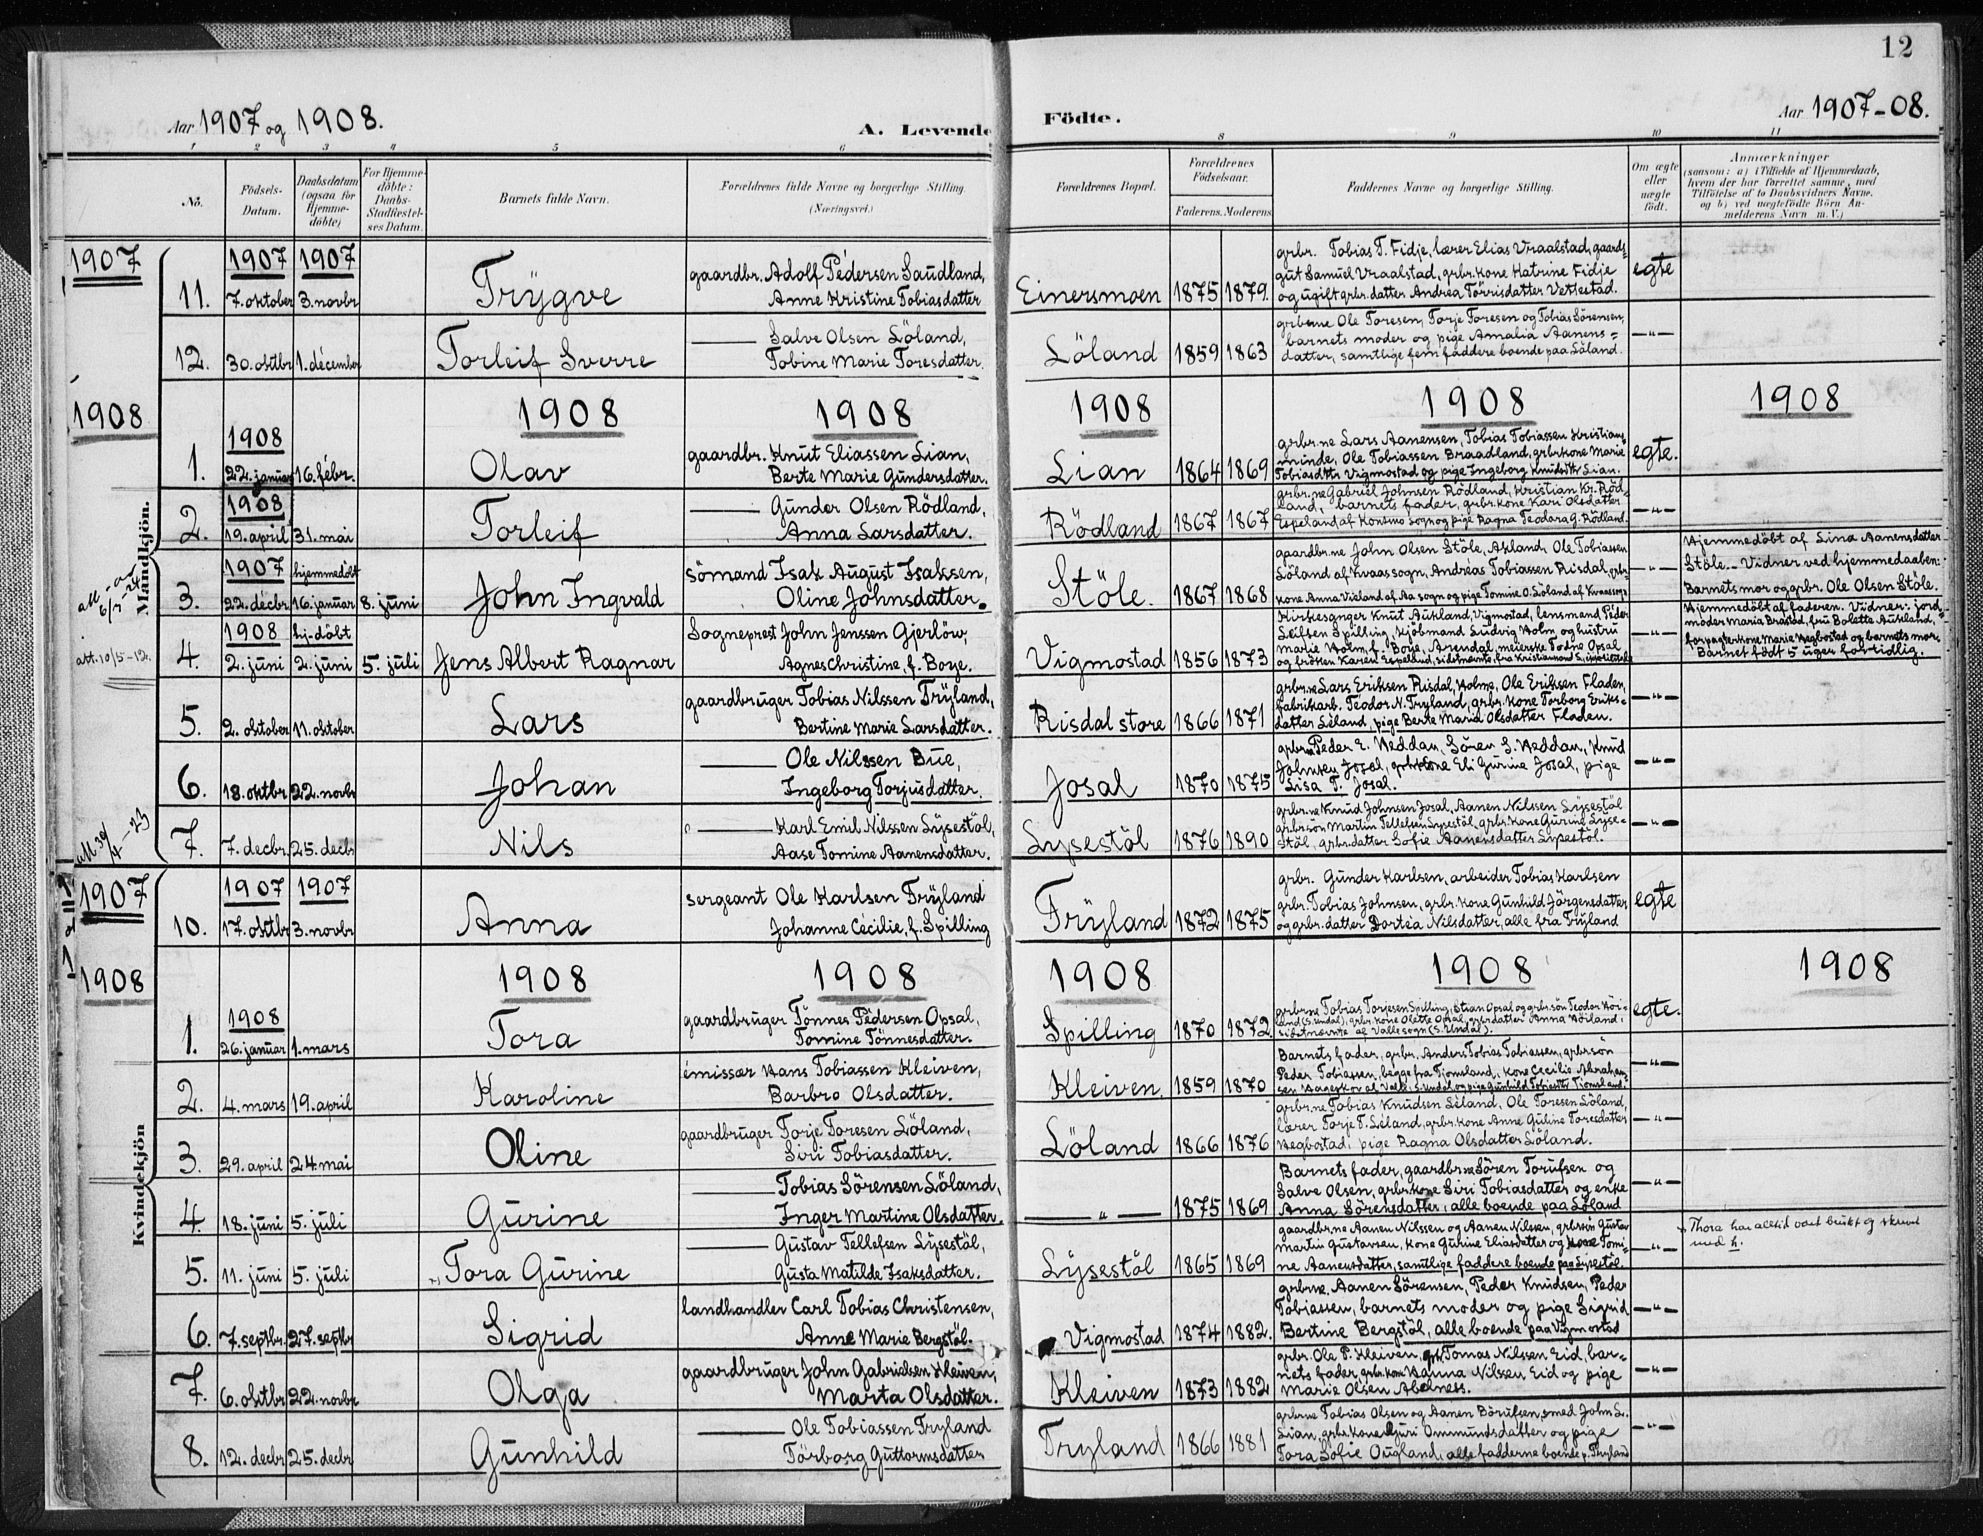 12
Aar 1907 og 1908.
A. Levende
Födte.
Aar 1907-08.
1 2 3 4 5 6 8 9 10 11
No.
Födsels-
Datum.
Daabsdatum
(ogsaa for
Hjemme-
döbte)
For Hjemme-
döbte:
Daabs-
Stadfæstel-
ses Datum.
Barnets fulde Navn.
Forældrenes fulde Navne og borgerlige Stilling
(Næringsvei.)
Forældrenes Bopæl.
Forældrenes
Födselsaar.
Faderens. Moderens
Faddernes Navne og borgerlige Stilling.
Om ægte
eller
uægte
födt.
Anmærkninger
(saasom: a) i Tilfælde af Hjemmedaab,
hvem der har forrettet samme, med
Tilföielse af to Daabsvidners Navne.
og b) ved uægtefödte Börn An-
melderens Navn m. V.)
1907
1907 1907
11. 7. oktober 3. novbr Trygve
gaardbr. Adolf Pedersen Saudland,
Anne Kristine Tobiasdatter
Einersmoen 1875 1879.
grbr. Tobias T. Fidje, lærer Elias Vraalstad, gaards-
gut Samuel Vraalstad, grbr. kone Katrine Fidje
og ugift grbr. datter Andrea Törrisdatter Vettestad.
egte
12. 30. oktbr 1. december Torleif Sverre
Salve Olsen Löland,
Tobine Marie Toresdatter.
Löland 1859 1863
grbrne Ole Toresen, Torje Toresen og Tobias Sörensen,
barnets moder og pige Amalia Aanens-
datter, samtlige fem faddere boende paa Löland.
—"—
1908
1908 1908 1908 1908 1908
1908
1. 22. januar 16. febr. Olav
gaardbr. Knut Eliassen Lian,
Berte Marie Gundersdatter.
Lian 1864 1869
grbr.ne Lars Aanensen, Tobias Tobiassen Kristians-
minde, Ole Tobiassen Braadland, grbr. kone Marie
Tobiasdttr Vigmostad og pige Ingeborg Knudsdttr Lian.
egte.
Mandkjön.
1908
2. 19. april 31. mai Torleif
Gunder Olsen Rödland,
Anna Larsdatter.
Rödland 1867 1867
grbr.ne Gabriel Johnsen Rödland, Kristian Kr. Röd-
land, barnets fader, grbr. kone Kari Olsdatter
Espeland af Konsmo sogn og pige Ragna Teodora G. Rödland.
—"—
1907 hjemmedöbt
3. 22. decbr. 16. januar 8. juni John Ingvald
sömand Isak August Isaksen,
Oline Johnsdatter.
Stöle. 1867 1868
gaardbr.ne John Olsen Stöle, Akland, Ole Tobiassen
Löland af Kvaas sogn, Andreas Tobiassen Risdal, grbr-
kone Anna Vieland af Aa sogn og pige Tomine O. Löland af Kvaas sogn
—"—
Hjemmedöbt af Lina Aanensdatter
Stöle. Vidner ved hjemmedaaben:
Barnets mor og grbr. Ole Olsen Stöle.
1908 hj-döbt
att. 10/5-12.
4. 2. juni 2. juni 5. juli Jens Albert Ragnar
Sogneprest John Jenssen Gjerlöw,
Agnes Christine, f. Boye.
Vigmostad 1856 1873
Kirkesanger Knut Aukland, Vigmostad, lensmand Peder
Leifsen Spilling, kjöbmand Ludvig Holm og hustru
Marie Holm, f. Boye, Arendal, meierske Todne Opsal
og fröken Karen Espelland, sidstnævnte fra Kristiansand S.
—"—
Hjemmedöbt af faderen. Vidner: jord-
moder Maria Brastad, fru Bolette Aukland,
forpagterkone Marie Hegbostad og barnets mor.
Barnet födt 5 uger fortidlig.
5. 2. oktober 11. oktober Lars
gaardbruger Tobias Nilssen Tryland,
Bertine Marie Larsdatter.
Risdal store 1866 1871
grbr.ne Lars Eriksen Risdal, Holme, Ole Eriksen Fladen,
fabrikarb. Teodor N. Tryland, grbr. kone Torborg Eriks-
datter Leland, pige Berte Maria Olsdatter Fladen.
—"—
6. 18. oktbr 22. novbr Johan
Ole Nilssen Bue,
Ingeborg Torjusdatter.
Josal 1870 1875
grbrne Peder E. Heddan, Sören S. Heddan, Knud
Johnsen Josal, grbr kone Eli Gurine Josal, pige
Lisa T. Josal.
—"—
att 30/4-23
7. 7. decbr. 25. decbr Nils
Karl Emil Nilssen Lysestöl,
Aase Tomine Aanensdatter.
Lysestöl 1876 1890
grbr.ne Knud Johnsen Josal, Aanen Nilssen Lysestöl
grbr sön Martin Tellefsen Lysestöl, grbr. kone Gurine Lyse-
stöl, grbr. datter Sofie Aanensdatter Lysestöl.
—"—
1907
1907 1907
10. 17. oktbr 3. novbr Anna
sergeant Ole Karlsen Tryland
Johanne Cecilie, f. Spilling
Tryland 1872 1875
grbr. Gunder Karlsen, arbeider Tobias Karlsen
grbr. Tobias Johnsen, grbr. kone Gunhild Jörgensdatter
og grbr. datter Dortea Nilsdatter, alle fra Tryland
egte
1908
1908 1908 1908 1908 1908
1908
1. 26. januar 1. mars Tora
gaardbruger Tönnes Pedersen Opsal,
Tomine Tönnesdatter.
Spilling 1870 1872.
grbrne Tobias Torjesen Spilling, Stian Opsal og grbr. sön Teodor Höi-
land (S. Undal), grbr. kone Olette Opsal, grbr datter Anna Höiland,
sidstnævnte af Valle sogn (S. Undal).
egte.
2. 4. mars 19. april Karoline
emissær Hans Tobiassen Kleiven,
Barbro Olsdatter.
Kleiven. 1859 1870
Barnets fader, grbr. Anders Tobias Tobiassen, grbr sön
Peder Tobiassen, begge fra Tjomsland, kone Cecilie Abraham-
sen Haaeskor af Valle, S. Undal og pige Gunhild Tobiasdtr Tjomsland.
—"—
3. 29. april 24. mai Oline
gaardbruger Torje Toresen Löland,
Siri Tobiasdatter.
Löland 1866 1876
grbr.ne Tobias Knudsen Leland, Ole Toresen Löland,
lærer Torje T. Leland, grbr. kone Anne Guline Toresdatter
Hegbostad, pige Ragna Olsdatter Löland.
—"—
Kvindekjön
4. 18. juni 5. juli Gurine
Tobias Sörensen Löland,
Inger Martine Olsdatter.
—"— 1875 1869
Barnets fader, gaardbrne Sören Torufsen og
Salve Olsen, grbr. kone Siri Tobiasdatter og enke
Anna Sörensdatter, alle boende paa Löland
—"—
5. 11. juni 5. juli Tora Gurine
Gustav Tellefsen Lysestöl,
Gusta Matilde Isaksdatter.
Lysestöl 1865 1869
gaardbr.ne Aanen Nilssen og Aanen Nilsen, grbrsön Gustav
Martin Gustavsen, kone Gurine Eliasdatter og kone Tomi-
ne Aanensdatter, samtlige faddere boende paa Lysestöl.
—"—
Thora har alltid vært brukt og skrevet
med h.
6. 7. septbr. 27. septbr Sigrid
landhandler Carl Tobias Christensen,
Anne Marie Bergstöl.
Vigmostad 1874 1882.
grbrne. Aanen Sörensen, Peder Knudsen, Peder
Tobiassen, barnets moder og pige Sigrid
Bertine Bergstöl, alle boende paa Vigmostad
—"—
7. 6. oktbr 22. novbr Olga
gaardbruger John Gabrielsen Kleiven,
Marta Olsdatter.
Kleiven 1873 1882
grbr. Ole P. Kleiven, grbr Tomas Nilssen Eid, bar-
nets fader, grbr. kone Hanna Nilssen Eid og pige
Marie Olsen Abelness.
—"—
8. 12. decbr 25. decbr Gunhild
Ole Tobiassen Tryland
Törborg Guttormsdatter
Tryland 1866 1881
grbrne Tobias Olsen og Aanen Börufsen, smed John L.
Lian, grbr. kone Guri Ommundsdatter og pige
Tora Sofie Ougland, alle fadderne boende p. Tryland
—"—